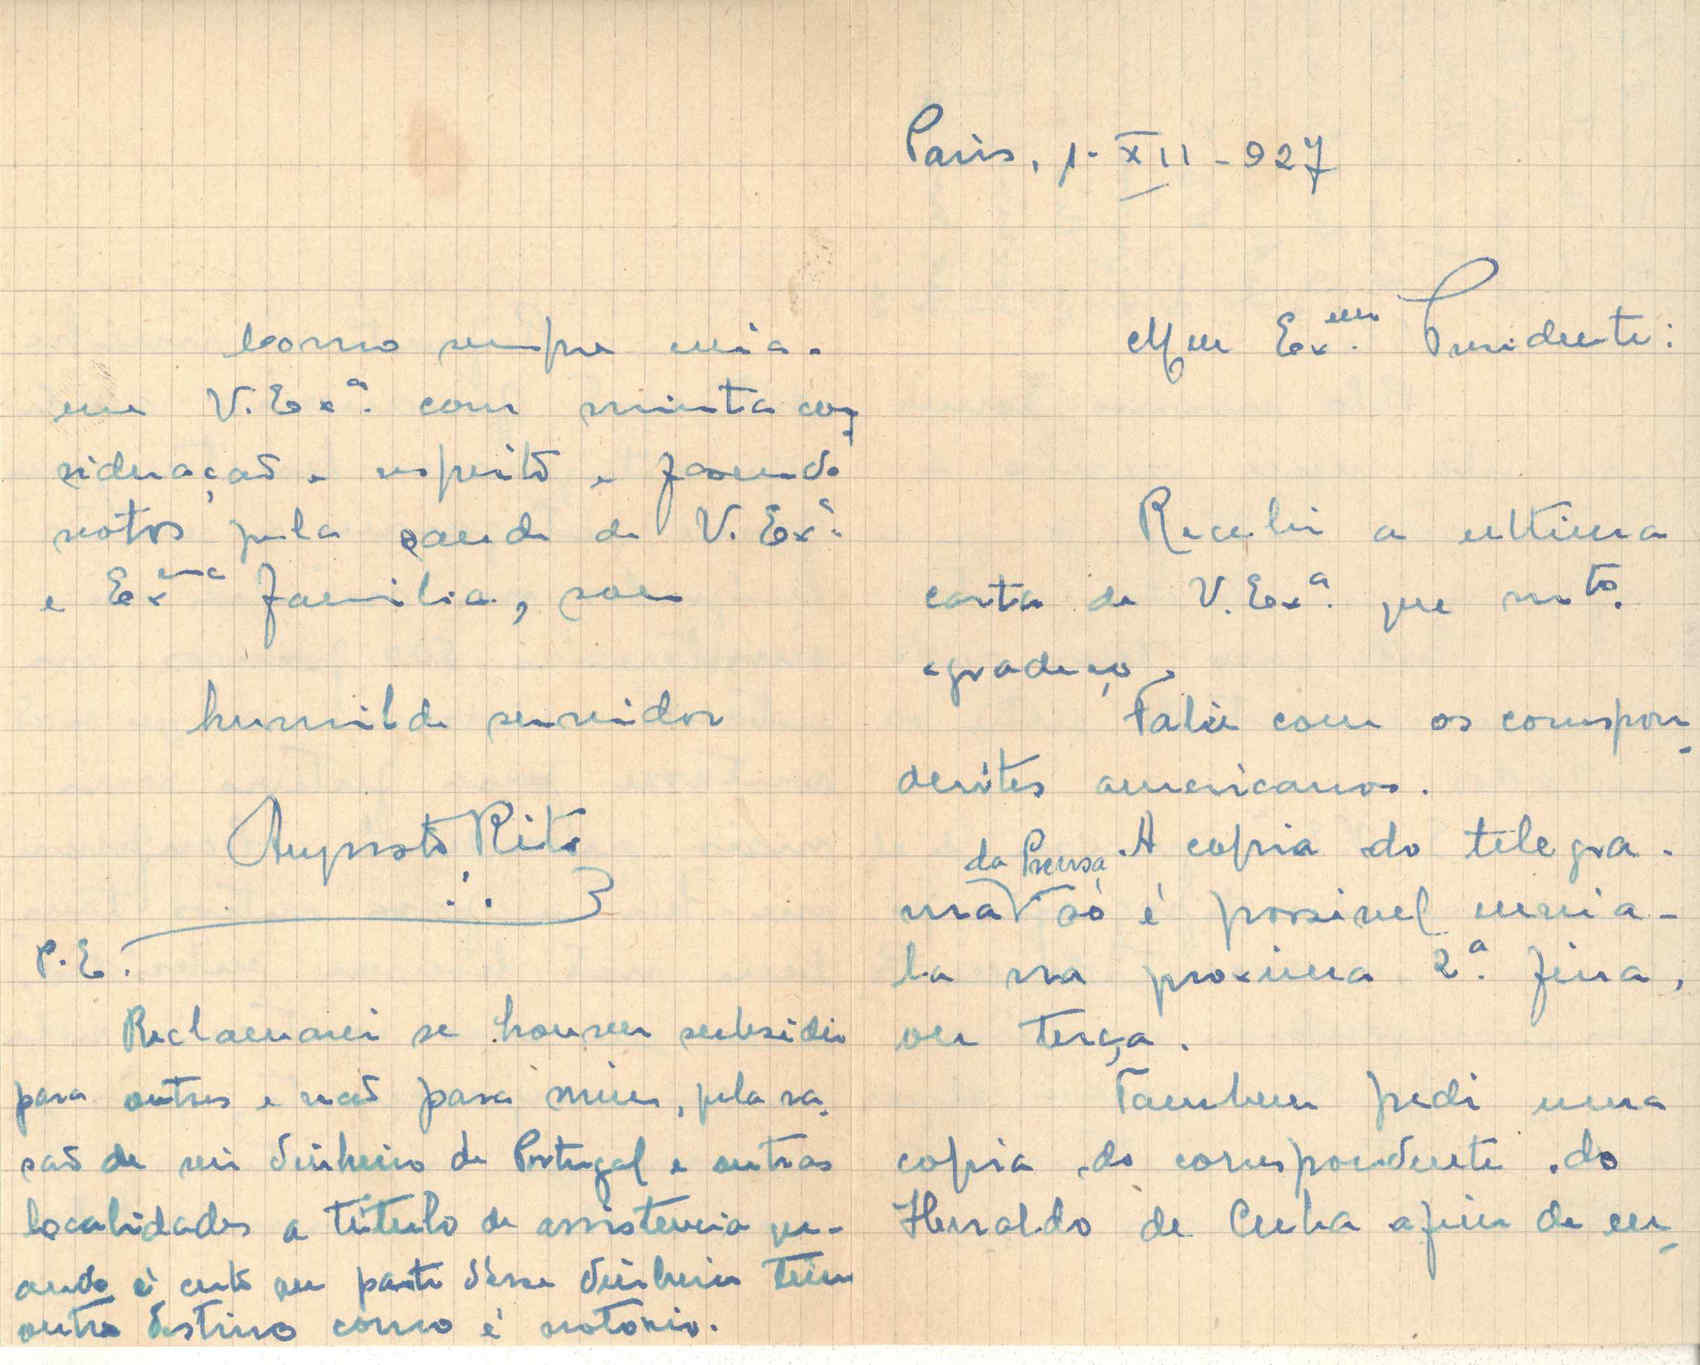 Paris, 1-XII-927
Meu Exᵐᵒ. Presidente:
Recebi a ultima
carta de V. Exª. que mᵗᵒ.
agradeço.
Falei com os correspon-
dentes americanos.
A copia do telegra-
ma da Prensa só é possivel envia-
la na proxima 2ª. feira,
ou terça.
Tambem pedi uma
copia do correspondente do
Heraldo de Cuba afim de en-
Como sempre
V. Exª. com muita con-
sideração e respeito e fazendo
votos pela saude de V. Exª.
e Exᵐᵃ familia, sou
humilde servidor
Augusto Rita
P.E.
Reclamarei se houver subsidio
para outros e não para mim, pela ra-
são de vir dinheiro de Portugal e outras
localidades a titulo de assistencia qu-
ando é certo que parte dêsse dinheiro tem
outro destino como é notorio.